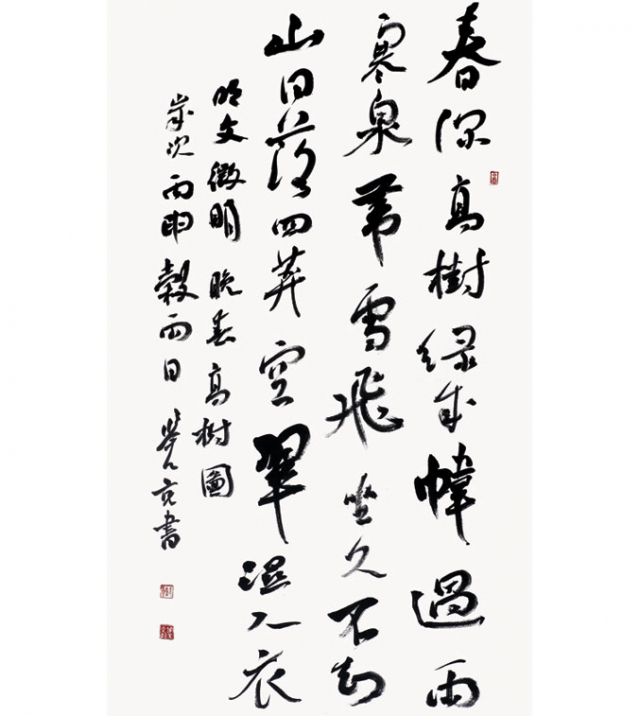 春深高樹绿成幃過雨
寒泉帶雪飛坐久不知
山日落四莽空翠湿人衣
明文徵明晚春高樹圖
歲次丙申穀雨日書